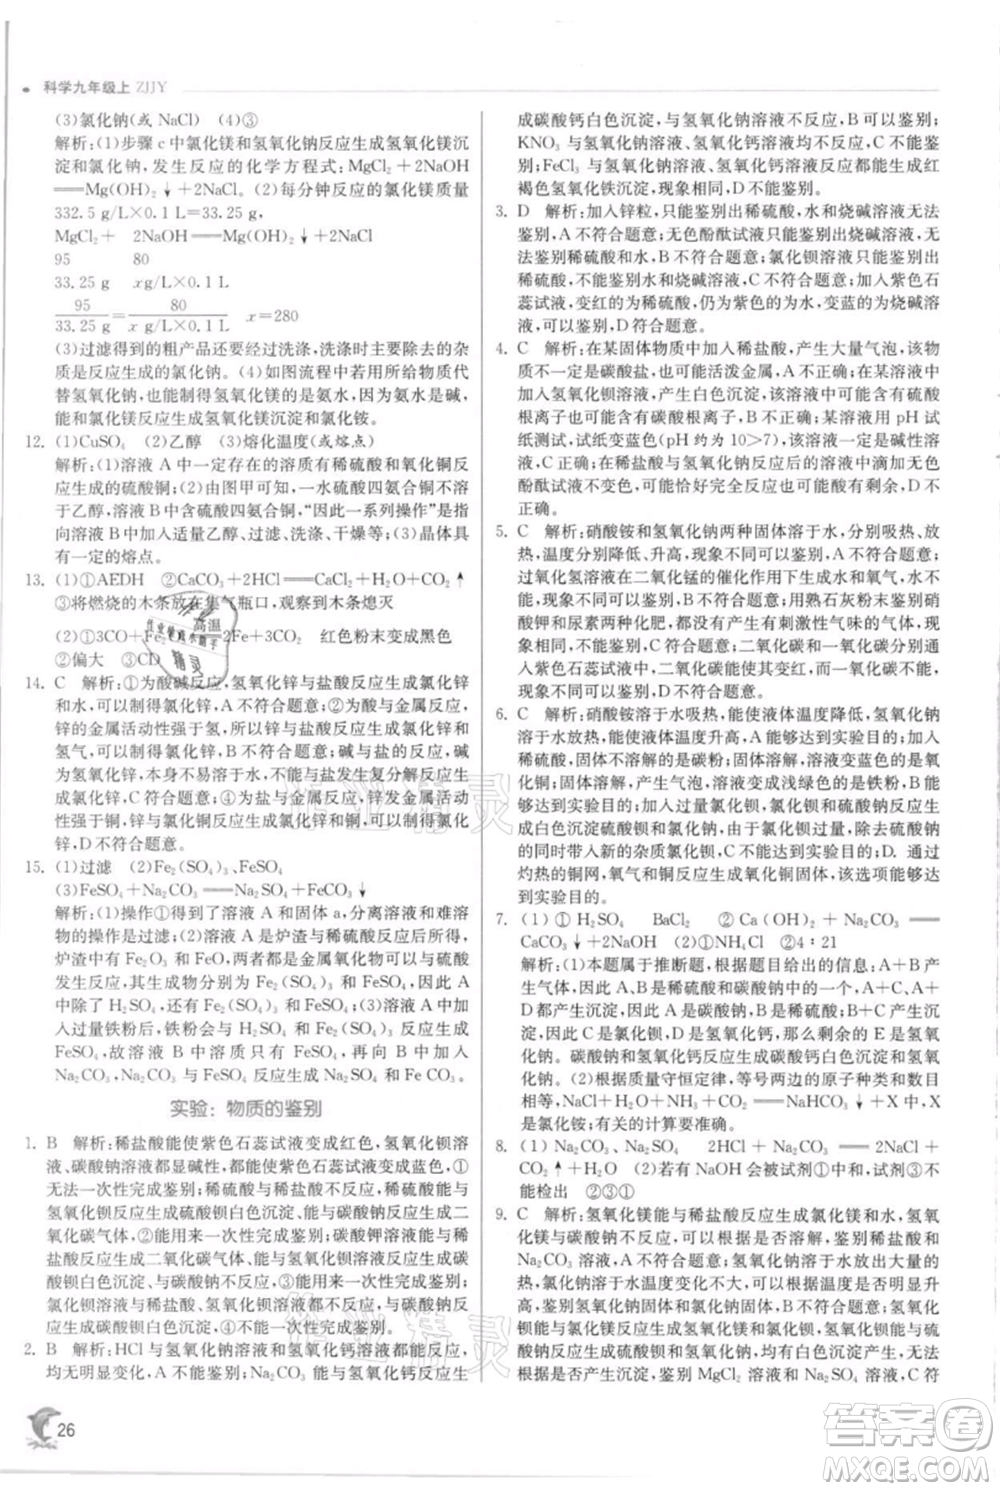 科学九年级上 ZJJY
(3)氯化钠(或 NaCl) (4)③
解析:(1)步骤 c 中氯化镁和氢氧化钠反应生成氢氧化镁沉
淀和氯化钠,发生反应的化学方程式:MgCl₂+2NaOH
══Mg(OH)₂↓+2NaCl。(2)每分钟反应的氯化镁质量
332.5 g/L×0.1 L=33.25 g
MgCl₂+2NaOH══Mg(OH)₂↓+2NaCl
95 80
33.25 g xg/L×0.1 L
95/33.25 g=80/x g/L×0.1 L x=280
(3)过滤得到的粗产品还要经过洗涤,洗涤时主要除去的杂
质是反应生成的氯化钠。(4)如图流程中若用所给物质代
替氢氧化钠,能制得氢氧化镁的是氨水,因为氨水显碱性,
能和氯化镁反应生成氢氧化镁沉淀和氯化铵。
12. (1)CuSO₄ (2)乙醇 (3)熔化温度(或熔点)
解析:(1)溶液 A 中一定存在的溶质有稀硫酸和氧化铜反
应生成的硫酸铜;(2)由图甲可知,一水硫酸四氨合铜不溶
于乙醇,溶液 B 中含硫酸四氨合铜,“因此一系列操作”是指
向溶液 B 中加入适量乙醇、过滤、洗涤、干燥等;(3)晶体具
有一定的熔点。
13. (1)①AEDH ②CaCO₃+2HCl══CaCl₂+H₂O+CO₂↑
③将燃烧的木条放在集气瓶口,观察到木条熄灭
(2)①3CO+Fe₂O₃═高温═2Fe+3CO₂ 红色粉末变成黑色
②偏大 ③CD
14. C 解析:①为酸碱反应,氢氧化锌与盐酸反应生成氯化锌
和水,可以制得氯化锌,A 不符合题意;②为酸与金属反应,
锌的金属活动性强于氢,所以锌与盐酸反应生成氯化锌和
氢气,可以制得氯化锌,B 不符合题意;碱与盐的反应,为
氢氧化锌与氯化铜的反应,但由于氢氧化锌为难溶性碱,
本身不易溶于水,所以不能与盐发生复分解反应,所以不
能生成氯化锌,C 符合题意;④为盐与金属反应,锌的金属
活动性强于铜,锌与氯化铜反应生成氯化锌和铜,可以制
得氯化锌,D 不符合题意。
15. (1)过滤 (2)Fe₂(SO₄)₃、FeSO₄
(3)FeSO₄+Na₂CO₃══Na₂SO₄+FeCO₃↓
解析:(1)操作①得到了溶液 A 和固体 a,分离溶液和难溶
物的操作是过滤;(2)因为,炉渣与过量的硫酸反应,而炉
渣中含有 Fe₂O₃ 和 FeO,两者都是金属氧化物,都会与硫
酸反应,生成物分别为 Fe₂(SO₄)₃ 和 FeSO₄,因此溶液 A
中除了 H₂SO₄,还有 Fe₂(SO₄)₃ 和 FeSO₄;(3)溶液 A 中加
入过量铁粉后,铁粉会与 H₂SO₄ 和 Fe₂(SO₄)₃ 反应生成
FeSO₄,故溶液 B 中溶质只有 FeSO₄,再向 B 中加入
Na₂CO₃,Na₂CO₃ 与 FeSO₄ 反应生成 Na₂SO₄ 和 FeCO₃。
实验:物质的鉴别
1. B 解析:稀盐酸能使紫色石蕊试液变成红色,氢氧化钡溶
液、碳酸钠溶液都显碱性,能使紫色石蕊试液变成蓝色,①
无法一次性完成鉴别;稀硫酸与稀盐酸不反应,稀硫酸能与
氢氧化钡反应生成硫酸钡白色沉淀,与碳酸钠反应生成二
氧化碳气体,②能用来一次性完成鉴别。碳酸钾溶液与稀
盐酸反应生成二氧化碳气体,与氢氧化钡溶液反应生成碳
酸钡白色沉淀,与碳酸钠不反应,③能用来一次性完成鉴别;
氯化钡溶液与稀盐酸、氢氧化钡溶液都不反应,与碳酸钠溶
液反应生成碳酸钡白色沉淀,④不能一次性完成鉴别。
2. B 解析:HCl 与氢氧化钠溶液和氢氧化钙溶液都能反应,
均无明显变化,A 不能鉴别;Na₂CO₃ 与氢氧化钙反应生
成碳酸钙白色沉淀,与氢氧化钠溶液不反应,B 能鉴别;
KNO₃ 与氢氧化钠溶液、氢氧化钙溶液均不反应,C 不能鉴
别;FeCl₃ 与氢氧化钠溶液、氢氧化钙溶液都能反应生成红
褐色氢氧化铁沉淀,现象相同,D 不能鉴别。
3. D 解析:加入锌粒,只能鉴别出稀硫酸,水和烧碱溶液无法
鉴别,A 不符合题意;无色酚酞试液只能鉴别出烧碱溶液,
无法鉴别稀硫酸和水,B 不符合题意;氯化钡溶液只能鉴别出
稀硫酸,不能鉴别水和烧碱溶液,C 不符合题意;加入紫色石
蕊试液,变红的为稀硫酸,仍为紫色的为水,变蓝的为烧碱溶
液,可以鉴别,D 符合题意。
4. C 解析:在某固体物质中加入稀盐酸,产生大量气泡,该物
质可能是碳酸盐,也可能是活泼金属,A 不正确;在某溶液
中滴加 BaCl₂ 溶液,产生白色沉淀,原溶液中可能含有硫酸
根离子也可能含有碳酸根离子,B 不正确;某溶液用 pH 试
纸测试,试纸变蓝色(pH 约为 10>7),该溶液一定显碱性,
C 正确;在稀盐酸与氢氧化钠反应后的溶液中滴加无色酚
酞试液,恰好完全反应和酸可能有剩余,溶液都不变色,D 不
正确。
5. C 解析:硝酸铵和氢氧化钠两种固体溶于水,分别吸热、放
热,溶液温度分别降低、升高,可以鉴别,A 不符合题意;水、
过氧化氢溶液在二氧化锰的催化作用下,分别为无明显现
象、有气泡产生,可以鉴别,B 不符合题意;用熟石灰粉末研
磨硫酸钾和尿素两种化肥,都没有有刺激性气味的气体产
生,不能鉴别,C 符合题意;一氧化碳和二氧化碳,分别通入
紫色石蕊试液中,二氧化碳能使其变红,一氧化碳不能,可
以鉴别,D 不符合题意。
6. C 解析:硝酸铵溶于水吸热,能使液体温度降低,氢氧化钠
溶于水放热,能使液体温度升高,A 能够达到实验目的;加入稀硫
酸,固体不溶解的是碳粉;固体溶解,溶液变成蓝色的是氧
化铜;固体溶解,产生气泡,溶液变成浅绿色的是铁粉,B 能
够达到实验目的;加入过量氯化钡溶液,硫酸钠与氯化钡反
应生成白色沉淀硫酸钡和氯化钠,由于氯化钡过量,除杂质
的同时带入新的杂质氯化钡,C 不能达到实验目的;通过
灼热的铜网,氧气和铜生成氧化铜固体,D 选项能够达到
实验目的。
7. (1)① H₂SO₄ BaCl₂ ② Ca(OH)₂+Na₂CO₃══
CaCO₃↓+2NaOH (2)①NH₄Cl ②4∶21
解析:(1)本题属于推断题,根据题目给出的信息:A+D、
A+C 产生沉淀,因此 A 是碳酸钠;A+B 产生气体,因此 B
是稀硫酸,因为碳酸钠和稀硫酸生成二氧化碳;B+C 产生沉
淀,因此 C 是氯化钡,D 是氢氧化钙,那么剩余的 E 是氢氧
化钠。碳酸钠和氢氧化钙生成碳酸钙沉淀和氢氧化钠。
(2)根据质量守恒定律,等号两边的原子种类和个数相等:
NaCl+H₂O+NH₃+CO₂══NaHCO₃+X,因此 X 是
NH₄Cl;有关的计算要准确。
8. (1) Na₂CO₃、Na₂SO₄ 2HCl + Na₂CO₃══2NaCl +
CO₂↑+H₂O (2)若有 NaOH 会被试剂①中和,试剂③不
能检出 ②③①
9. C 解析:氢氧化镁能与稀盐酸反应生成氯化镁和水,氢氧
化镁与硫酸钾不反应,除去硫酸钾溶液中的氢氧化镁可选用过
滤,A 不符合题意;氢氧化钠固体溶于水放出大量的
热,氯化钠溶于水温度变化不大,可以根据温度是否明显升
高,鉴别氢氧化钠固体和氯化钠固体,B 不符合题意;氢氧化
钡能与硫酸镁生成氢氧化镁和硫酸钡白色沉淀,氢氧化
钡与硫酸钠生成硫酸钡白色沉淀和氢氧化钠,现象相同,无
法鉴别,C 符合题意;碳酸钙高温煅烧生成氧化钙和二氧化
26
答案圈
MXQE.COM
作业精灵